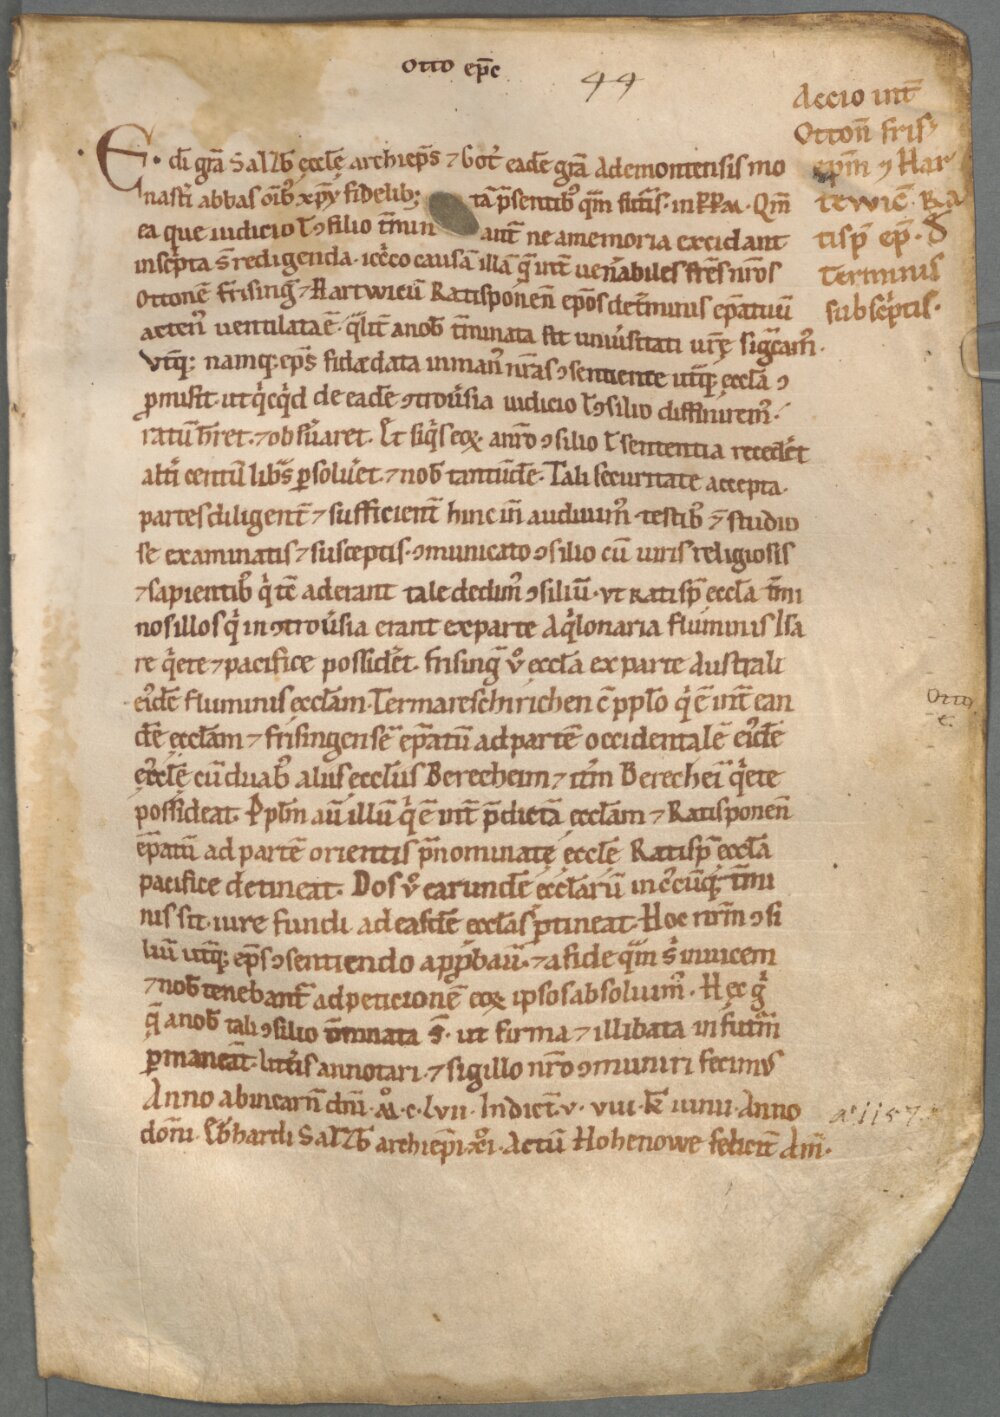 otto ep̄c
44
Accio int̄
Otton̄ fris̄
ep̄m ꝯ Har
tewic̄ · Ra
tisp̄ ep̄ · δ
Terminis
subsc̓ptis ·
E · dī gr̄a Salzb̄ eccl̄ę archiep̄s ⁊ Got̓ eadē gr̄a Ademontensis mo
nast̓i abbas om̄ib; xp̄ı fidelib; tā p̄sentib; qm̄ fut̓is · in · Qm̄
ea que iudicio ł ꝯsilio t̄min ant̄ ne a memoria excidant
insc̓pta s̄ redigenda · icc̓co causā illā q̄ int̄ uen̄abiles fr̄es nr̄os
Ottonē Frisinḡ ⁊ Hartwicū Ratisponen̄ ep̄os de t̄minis ep̄atuū
acten̓ uentilata ē · q̄lit̄ a nob̄ t̄minata sit uniu̓sitati ur̄ę sig̓cam̓ ·
Vtq̓; namq; ep̄s fidę data in man̓ nr̄as ꝯsentiente utq̓; eccl̄a ꝯ
ꝓmisit · ut q̓cq̓d de eadē ꝯtrou̓sia iudicio ł ꝯsilio diffinirem̓ ·
ratū h̄ret · ⁊ obs̓uaret · Et siq̓s eoꝝ · a nr̄o ꝯsilio ł sententia reced̓et
alt̓i centū libr̄s ꝑsolu̓et · ⁊ nob̄ tantūdē · Tali securitate accepta ·
partes diligent̄ ⁊ sufficient̄ hinc in̄ audiuim̓ · testib; ꝯ studio
se examinatis ⁊ susceptis · ꝯmunicato ꝯsilio cū uiris religiosis
⁊ sapientib; q̓ t̄c aderant tale dedim̓ ꝯsiliū · ut Ratisp̄ eccl̄a t̄mi
nos illos q̓ in ꝯtrou̓sia erant ex parte Aq̓lonaria fluminis Isa
re q̓ete ⁊ pacifice possid̓et · Frisinḡ v̊ eccl̄a ex parte Australi
ei̓dē fluminis eccl̄am · Termareschirichen c̄ pplo q̓ ē int̄ ean
dē eccl̄am ⁊ frisingensē ep̄atū ad partē occidentalē ei̓dē
eccl̄ę cū duab; aliis eccl̄iis Berecheim ⁊ itm̄ Berecheī q̓ete
possideat · Pplm̄ aū illū q̓ ē int̄ p̄dictā eccl̄am ⁊ Ratisponen̄
ep̄atū ad partē orientis p̄nominatę eccl̄ę Ratisp̄ eccl̄a
pacifice detineat · Dos v̊ earundē eccl̄arū in q̓cūq; t̄mi
nis sit · iure fundi ad easdē eccl̄as ꝑtineat · Hoc nr̄m ꝯsi
liū utq̓; ep̄s ꝯsentiendo app̓bauī · ⁊ a fide qm̄ s̓ inuicem
⁊ nob̄ tenebant̄ ad peticionē eoꝝ ipsos absoluim̓ · Hęc g̓
q̄ a nob̄ tali ꝯsilio t̄minata s̄ · ut firma ⁊ illibata in fut̓m
ꝑmaneāt · litt̓is annotari · ⁊ sigillo nr̄o ꝯmuniri fecimus
Anno ab incarn̄ dn̄i · m̊ · c · lvii · Indict̄ · v · viii · kł iunii · Anno
don̄i Ebhardi Salzb̄ archiep̄i · xi̊ · Actū Hohenowe felicit̄ Am̄ ·
Otto
e.
a° 1157.